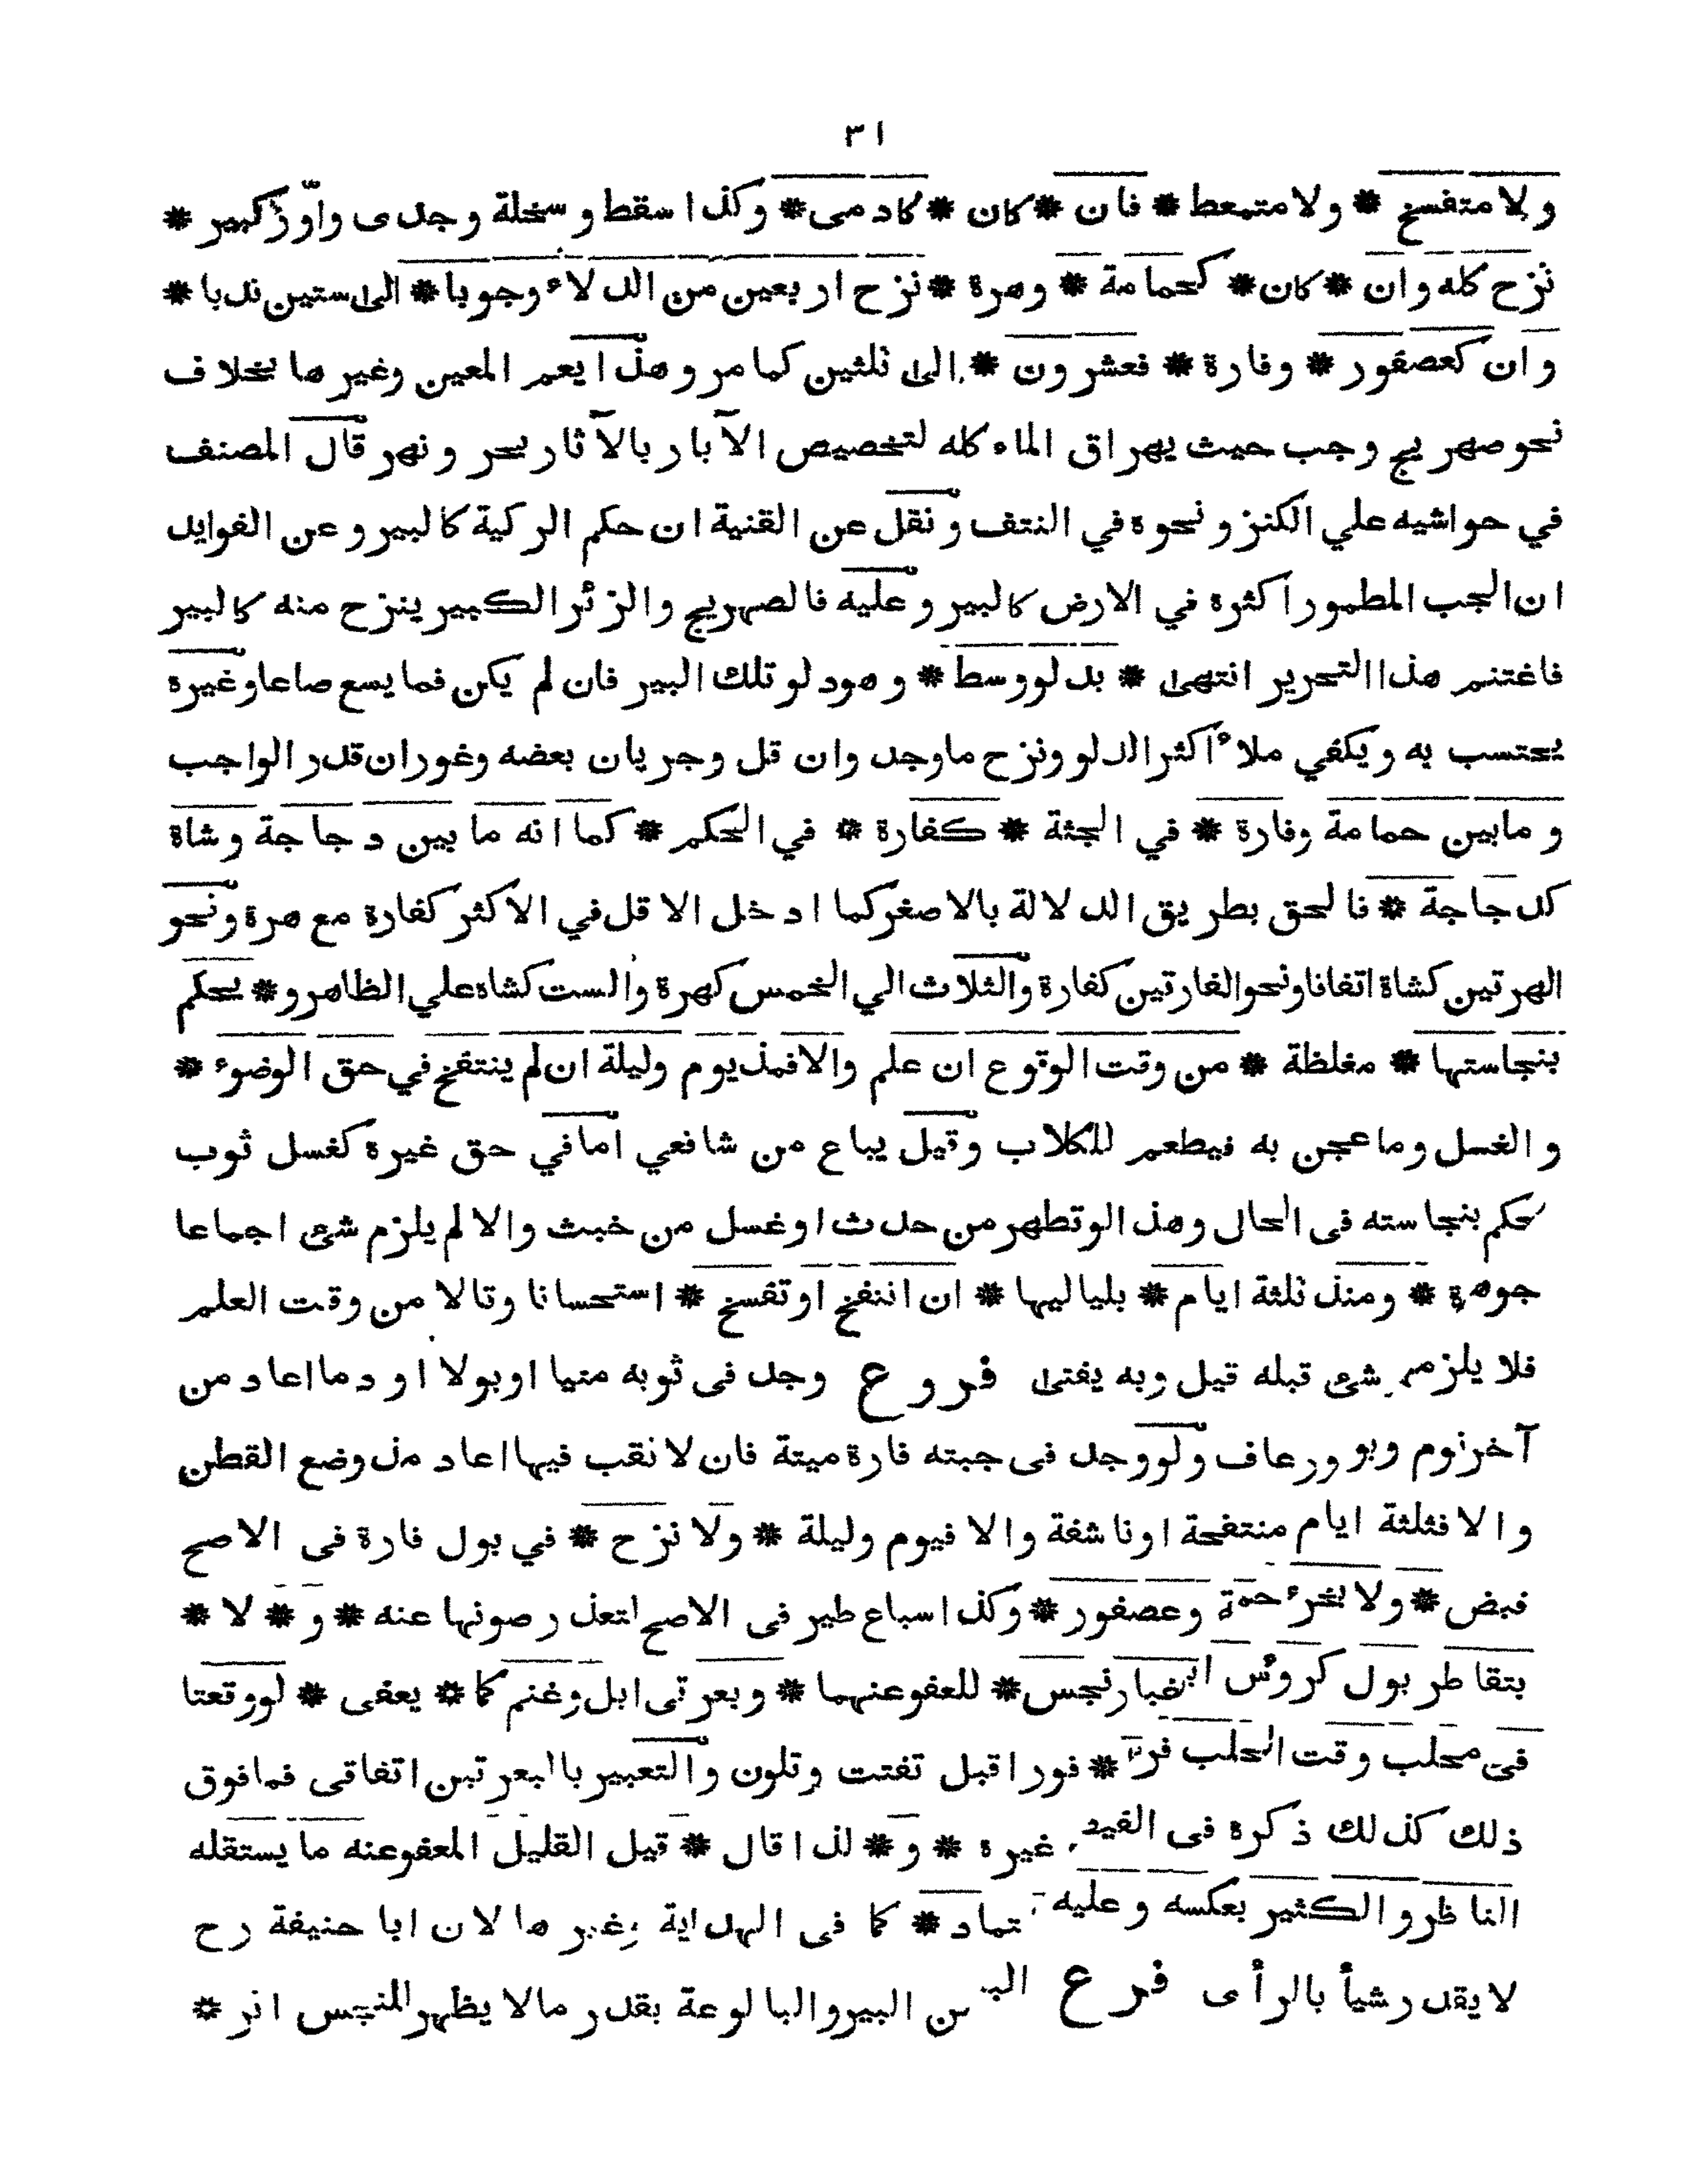 ٣١
ولا متفسخ * ولا متمعط * فان * كان * كادمى * وكذا سقط وسخلة وجدى واوّز كبير *
نزح كله وان * كان * كحمامة * وهرة * نزح اربعين من الدلاء وجوبا * الى ستين ندبا *
وان كعصفور * وفارة * فعشرون * الى ثلثين كما مر وهذا يعم المعين وغيرها بخلاف
نحو صهريج وجب حيث يهراق الماء كله لتخصيص الآبار بالآثار بحر ونهر قال المصنف
في حواشيه علي الكنز ونحوه في النتف ونقل عن القنية ان حكم الركية كالبير وعن الفوايد
ان الجب المطمور اكثره في الارض كالبير وعليه فالصهريج والزئر الكبير ينزح منه كالبير
فاغتنم هذا التحرير انتهى * بدلو وسط * وهو دلو تلك البير فان لم يكن فما يسع صاعا وغيره
يحتسب به ويكفي ملاء اكثر الدلو ونزح ما وجد وان قل وجريان بعضه وغوران قدر الواجب
وما بين حمامة وفارة * في الجثة * كفارة * في الحكم * كما انه ما بين دجاجة وشاة
كدجاجة * فالحق بطريق الدلالة بالاصغر كما ادخل الاقل في الاكثر كفارة مع هرة ونحو
الهرتين كشاة اتفاقا ونحو الفارتين كفارة والثلاث الي الخمس كهرة والست كشاه علي الظاهر و * يحكم
بنجاستها * مغلظة * من وقت الوقوع ان علم والا فمذ يوم وليلة ان لم ينتفخ في حق الوضوء *
والغسل وما عجن به فيطعم للكلاب وقيل يباع من شافعي اما في حق غيره كغسل ثوب
حكم بنجاسته فى الحال وهذا لو تطهر من حدث او غسل من خبث والا لم يلزم شئ اجماعا
جوهرة * ومنذ ثلثة ايام * بلياليها * ان انتفخ او تفسخ * استحسانا وقالا من وقت العلم
فلا يلزم شئ قبله قيل وبه يفتى فروع وجد فى ثوبه منيا او بولا او دما اعاد من
آخر نوم وبو ورعاف ولو وجد فى جبته فارة ميتة فان لا نقب فيها اعاد مذ وضع القطن
والا فثلثة ايام منتفخة او ناشفة والا فيوم وليلة * ولا نزح * في بول فارة فى الاصح
فيض * ولا بخرء حمة وعصفور * وكذا سباع طير فى الاصح لتعذر صونها عنه * و * لا *
بتقاطر بول كروس ابر غبار نجس * للعفو عنهما * وبعرتى ابل وغنم كما * يعفى * لو وقعتا
فى محلب وقت الحلب فر * فورا قبل تفتت وتلون والتعبير بالبعرتين اتفاقى فما فوق
ذلك كذلك ذكره فى الفيض غيره * و * لذا قال * قيل القليل المعفو عنه ما يستقله
الناظر والكثير بعكسه وعليه تماد * كما فى الهداية وغيرها لان ابا حنيفة رح
لا يقدر شيأ بالرأى فرع البير والبالوعة بقدر ما لا يظهر للنجس اثر *